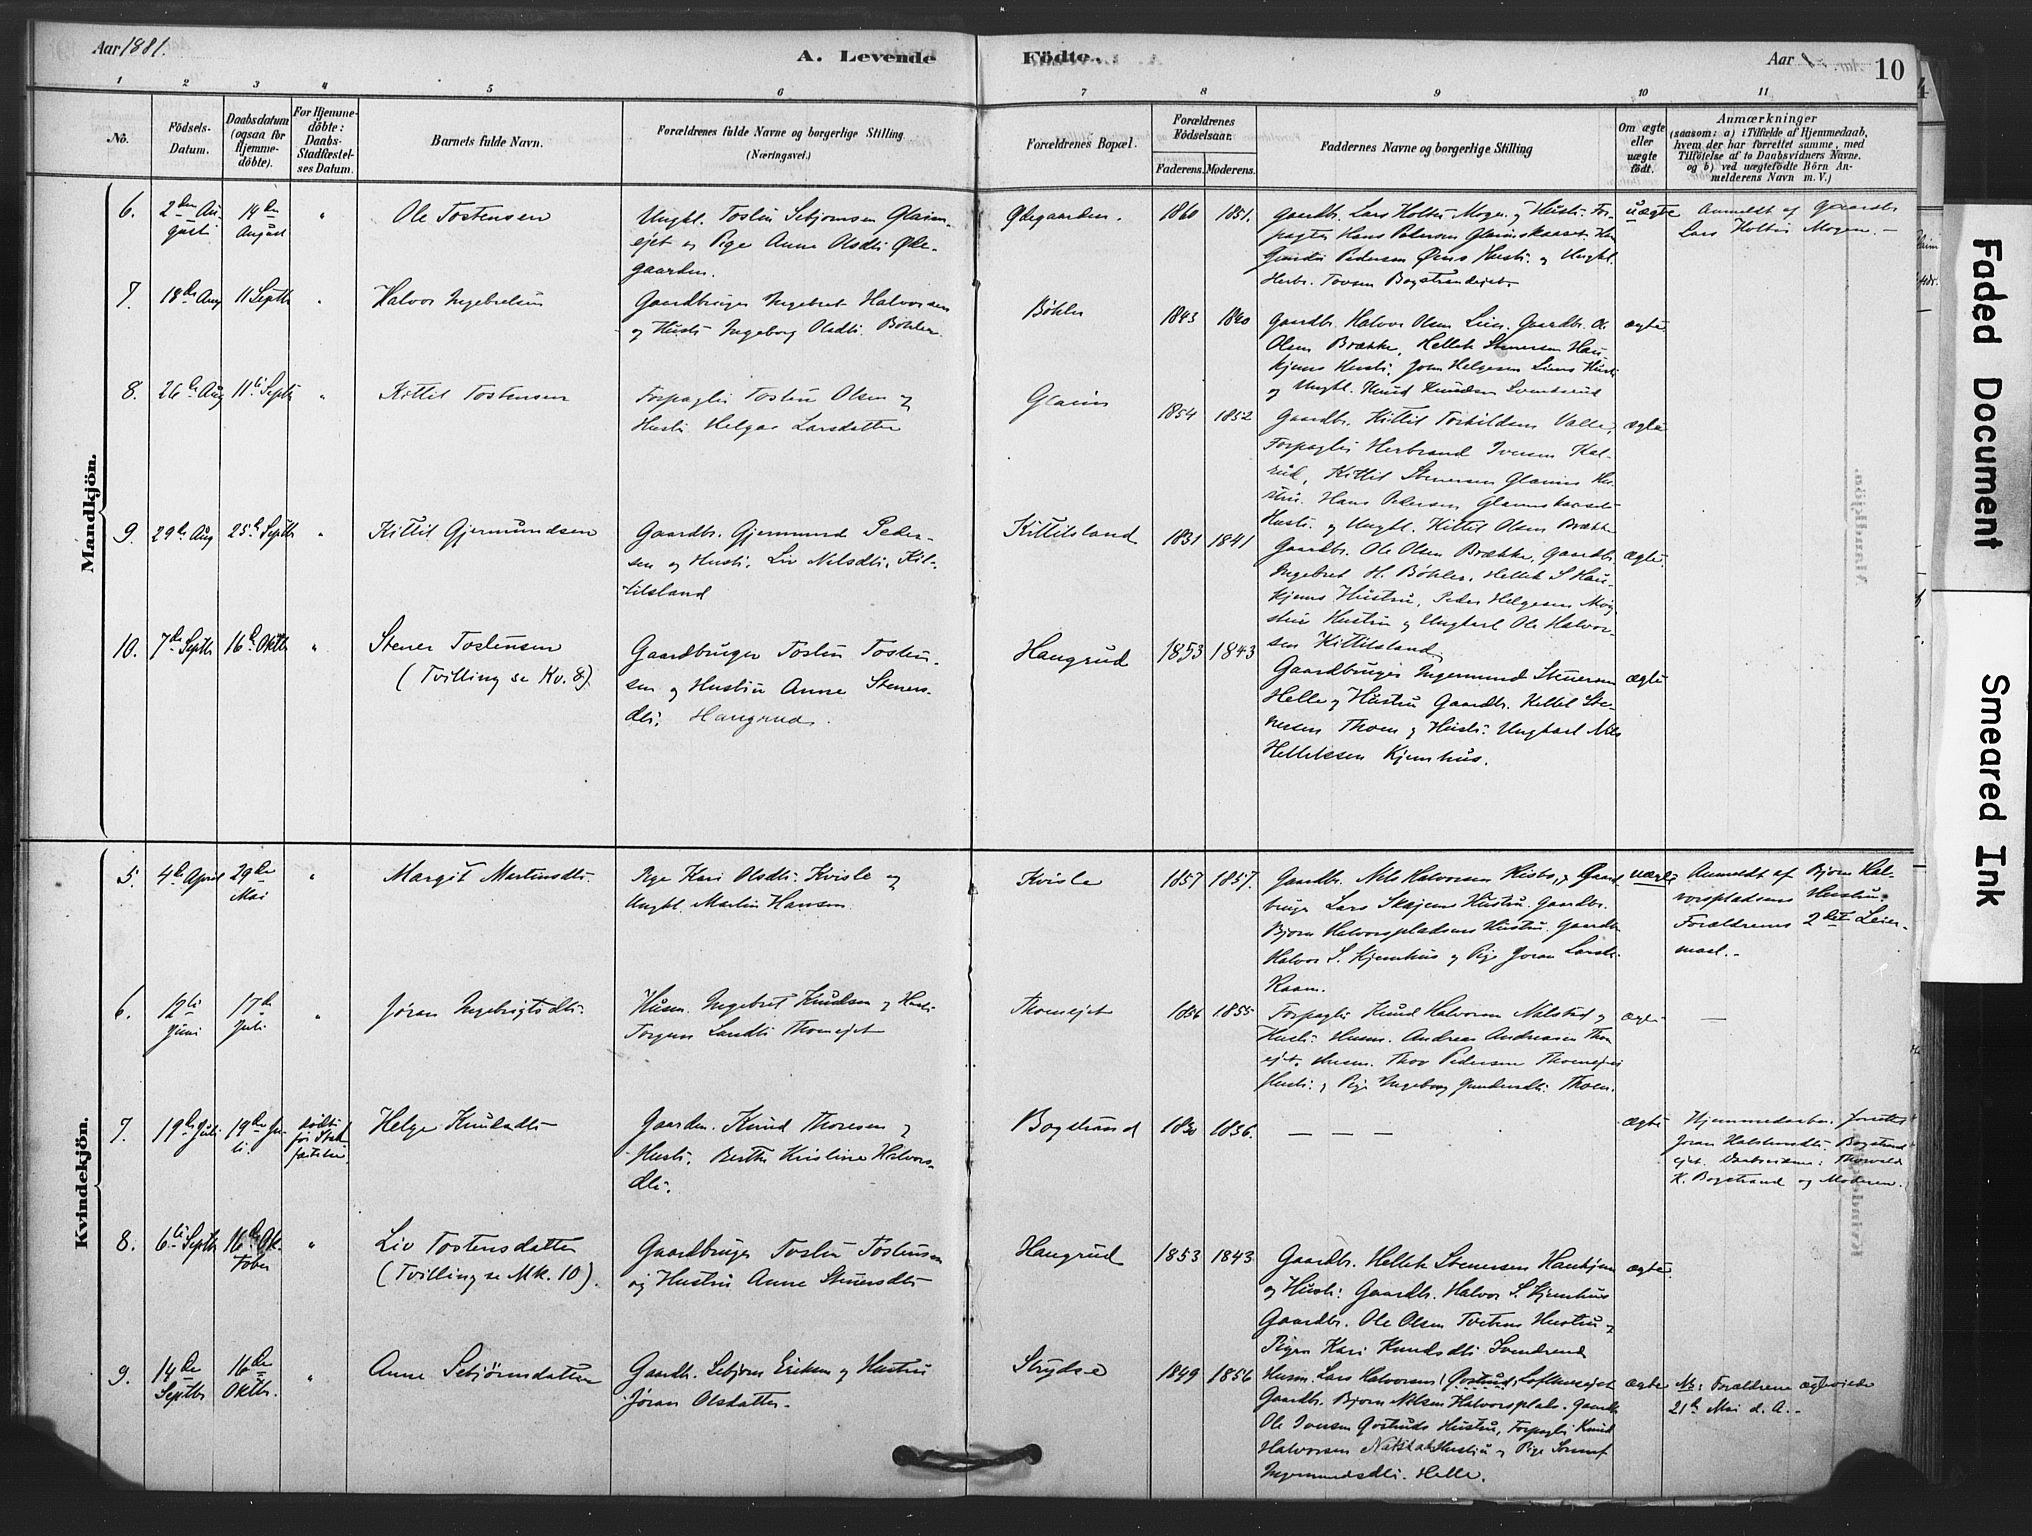 Aar 1881.
A. Levende Födte.
Aar 10
1 2 3 4 5 6 7 8 9 10 11
No.
Födsels-Datum.
Daabsdatum (ogsaa for Hjemme-döbte).
For Hjemme-döbte: Daabs-Stadfæstel-ses Datum.
Barnets fulde Navn.
Forældrenes fulde Navne og borgerlige Stilling (Næringsvei.)
Forældrenes Bopæl.
Forældrenes Födselsaar.
Faderens. Moderens.
Faddernes Navne og borgerlige Stilling
Om ægte eller uægte födt.
Anmærkninger
(saasom: a) i Tilfælde af Hjemmedaab,
hvem der har forrettet samme, med
Tilföielse af to Daabsvidners Navne.
og b) ved uægtefödte Börn An-
melderens Navn m. V.)
Mandkjön.
6. 2den August 14de August " Ole Tostensen
Ungkl. Tostin Sebjornsen Glaim-
ejet og Pige Anne Olsdtr. Øde-
gaarden.
Ødegaarden. 1860 1851.
Gaardbr. Lars Holtes Mogen og Hustr. For-
pagter Hans Pedersen Glaimskaaset.
Pedersen Hustr. og Ungkl.
Herbr. Tovsen Bogstrandejet.
uægte
Anmeldt af Gaardbr.
Lars Holtes Mogen. -
7. 18de Aug 11 Septbr " Halvor Ingebretsen
Gaardbruger Ingebret Halvorsen
og Hustr. Ingeborg Olsdtr. Böhler.
Böhler 1843 1840
Gaardbr. Halvor Olsen Lien. Gaardbr. O.
Olsen Brække, Hellek Stenersen Hau-
kjems Hustr. John Helgesen Liens Hustr.
og Ungkl. Knud Knudsen Svendsrud
ægte.
8. 26de Aug 11te Septbr " Kittil Tostensen
Forpagter Tostein Olsen og
Hustr. Helga Larsdatter
Glaim 1854 1852
Gaardbr. Kittil Torkildsen Valle,
Forpagter Herbrand Iversen Kal-
rud, Kittil Stenersen Glaims Hu-
stru. Hans Pedersen Glaimskaasets
Hustr. og Ungkl. Kittil Olsen Brække
ægte
9. 29de Aug 25de Septbr " Kittil Gjermundsen
Gaardbr. Gjermund Peder-
sen og Hustr. Liv Nelsdtr. Kit-
tilsland
Kittilsland 1831 1841
Gaardbr. Ole Olsen Brække, Gaardbr.
Ingebret H. Böhler, Hellek S. Hau-
kjems Hustru, Peder Helgesen
Hustru og Ungkarl Ole Halvor-
sen Kittilsland
ægte.
10. 7de Septbr 16de Oktbr " Stener Tostensen
(Tvilling se Kv. 8).
Gaardbruger Tostein Tostein-
sen og Hustru Anne Steners-
dtr. Haugrud.
Haugrud 1853 1843
Gaardbruger Ingermund Stenersen
Helle og Hustru Gaardbr. Kittil Ste-
nersen Thoen og Hustr. Ungkarl Nils
Helleksen Kjemhus.
ægte
Kvindekjön.
5. 4de April 29de Mai " Margit Martinsdtr.
Pige Kari Olsdtr. Kvisle og
Ungkl. Martin Hansen
Kvisle 1857 1857.
Gaardbr. Nils Halvorsen og Gaard-
bruger Lars Skajem Hustru. Gaardbr.
Bjorn Halvorspladsens Hustru. Gaardbr.
Halvor S. Kjemhus og Pige Joran Larsdtr.
Raaen.
uægte
Anmeldt af Bjorn Hal-
vorspladsens Hustru.
Forældrenes 2det Leier-
maal. -
6. 12te Juni 17de Juli " Jøran Ingebrigtsdtr.
Husm. Ingebret Knudsen og Hustr.
Torgun Larsdtr. Thoenejet
Thoenejet 1856 1855
Forpagter Knud Halvorsen Nalstad og
Hustr. Husm. Andreas Andreasen Thoe-
ejet. Husm. Thov Pedersen Thoenejets
Hustr. og Pige Ingeborg Gundersdtr. Thoen.
ægte -
7. 19de Juli 19de Juli dödt för Stad-fæstelse. Helge Knudsdtr.
Gaardm. Knud Thoresen og
Hustr. Berthe Kristine Halvors-
dtr.
Bogstrand 1830 1836.
- - -
ægte
Hjemmedaaben forrettet
Joran Halstensdtr. Bogstrand
ejet. Daabsvidner: Thorvald
K. Bogstrand og Moderen.
8. 6te Septbr 16de Oktober " Liv Tostensdatter
(Tvilling se Mk. 10).
Gaardbruger Tostein Tostensen
og Hustru Anne Stenersdtr.
Haugrud 1853 1843
Gaardbr. Hellek Stenersen Haukjem
og Hustr. Gaardbr. Halvor S. Kjemhus
Gaardbr. Ole Olsen Tveitens Hustru og
Pigen Kari Knudsdtr. Svendsrud
ægte.
9. 14de Septbr 16de Oktbr. " Anne Sebjörnsdatter
Gaardbr. Sebjörn Eriksen og Hustru
Jöran Olsdatter.
Strydse 1849 1856
Husm. Lars Halvorsen (Gostrud) Lofthusejet
Gaardbr. Bjorn Nilsen Halvorsplads. Gaardbr.
Ole Iversen Gostruds Hustru, Forpagter Knud
Halvorsen Nalstads Hustru og Pige
Ingermundsdtr. Helle.
ægte
Nb: Forældrene ægteviede
21de Mai d. A. -
Faded Document
Smeared Ink